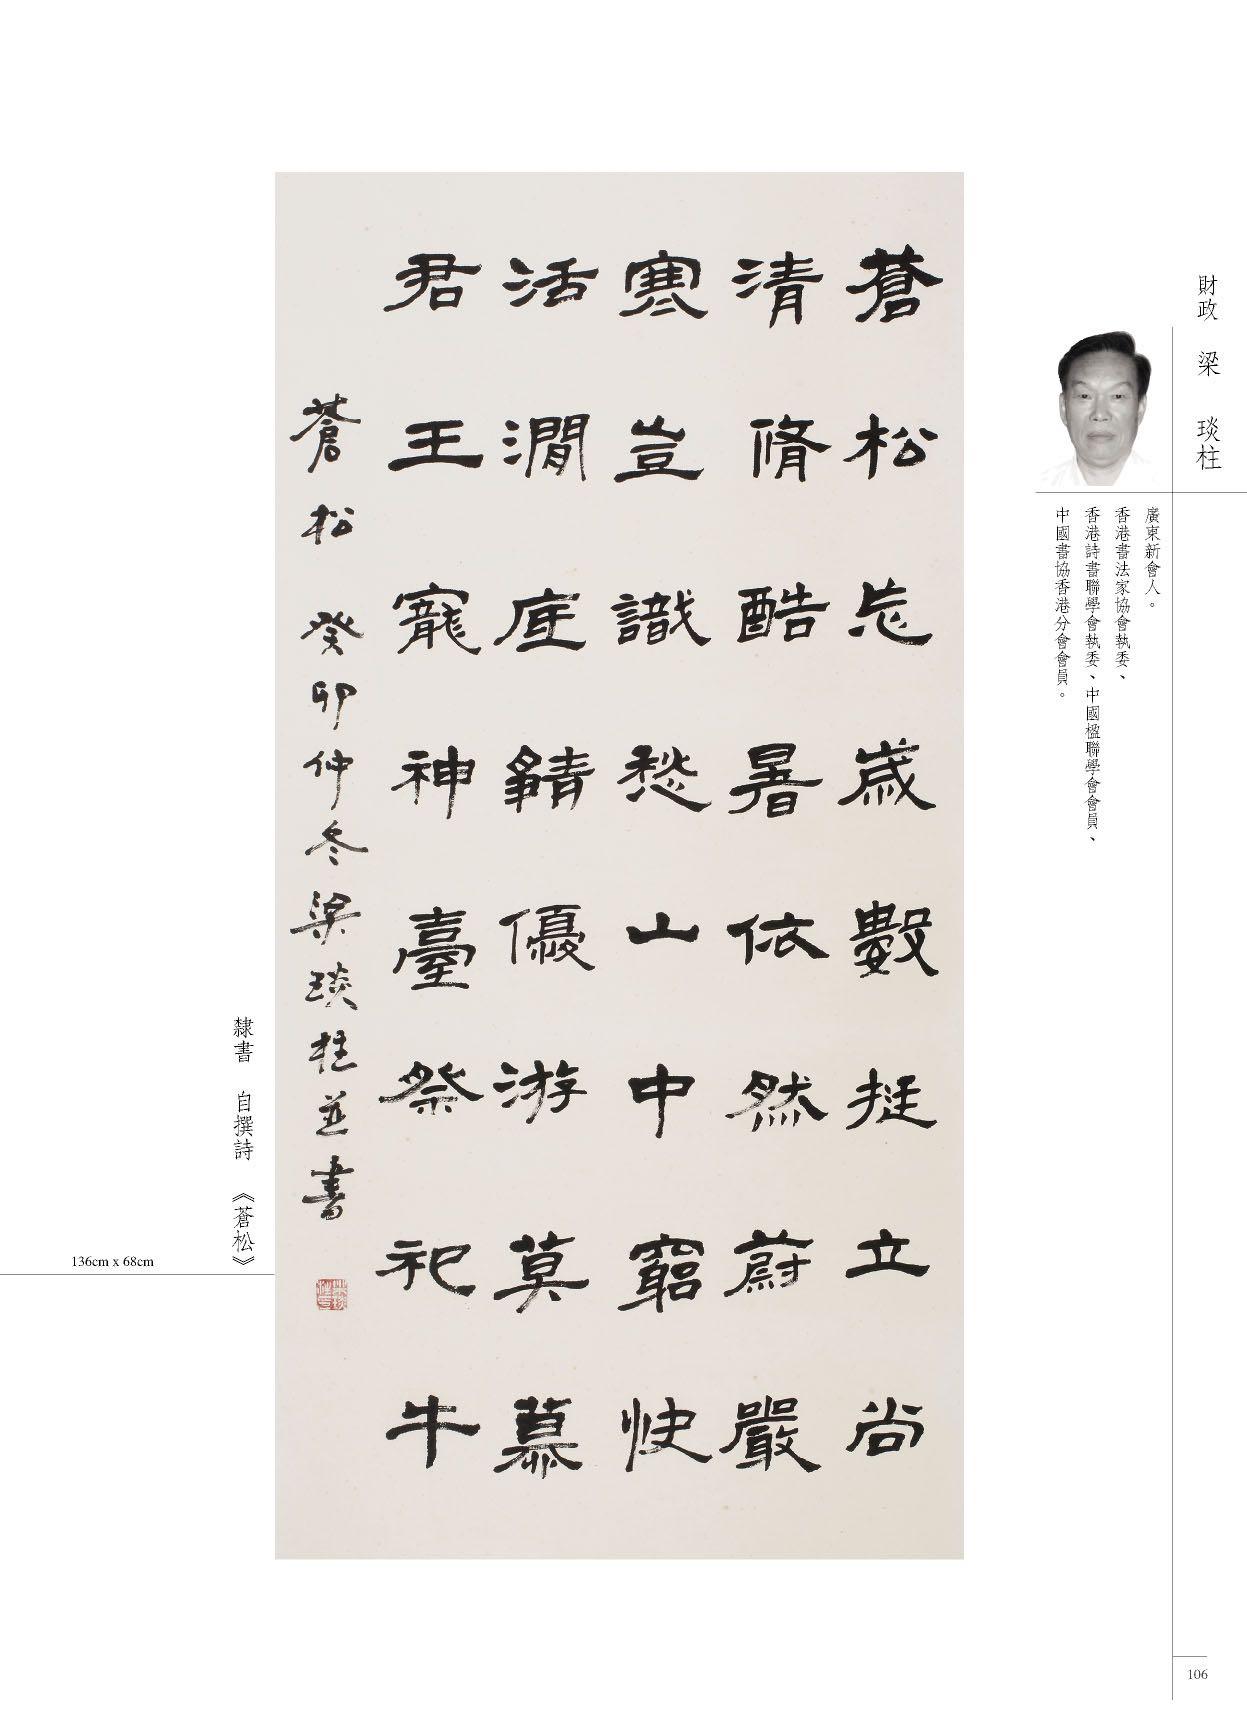 財政 梁 琰柱
廣東新會人。
香港書法家協會執委、
香港詩書聯學會執委、中國楹聯學會會員、
中國書協香港分會會員。
蒼松忘歲數挺立尚
清脩酷暑依然蔚嚴
寒豈識愁山中窮快
活澗底靜優游莫慕
君王寵神臺祭祀牛
蒼松 癸卯仲冬梁琰柱並書
隸書 自撰詩 《蒼松》
136cm x 68cm
106